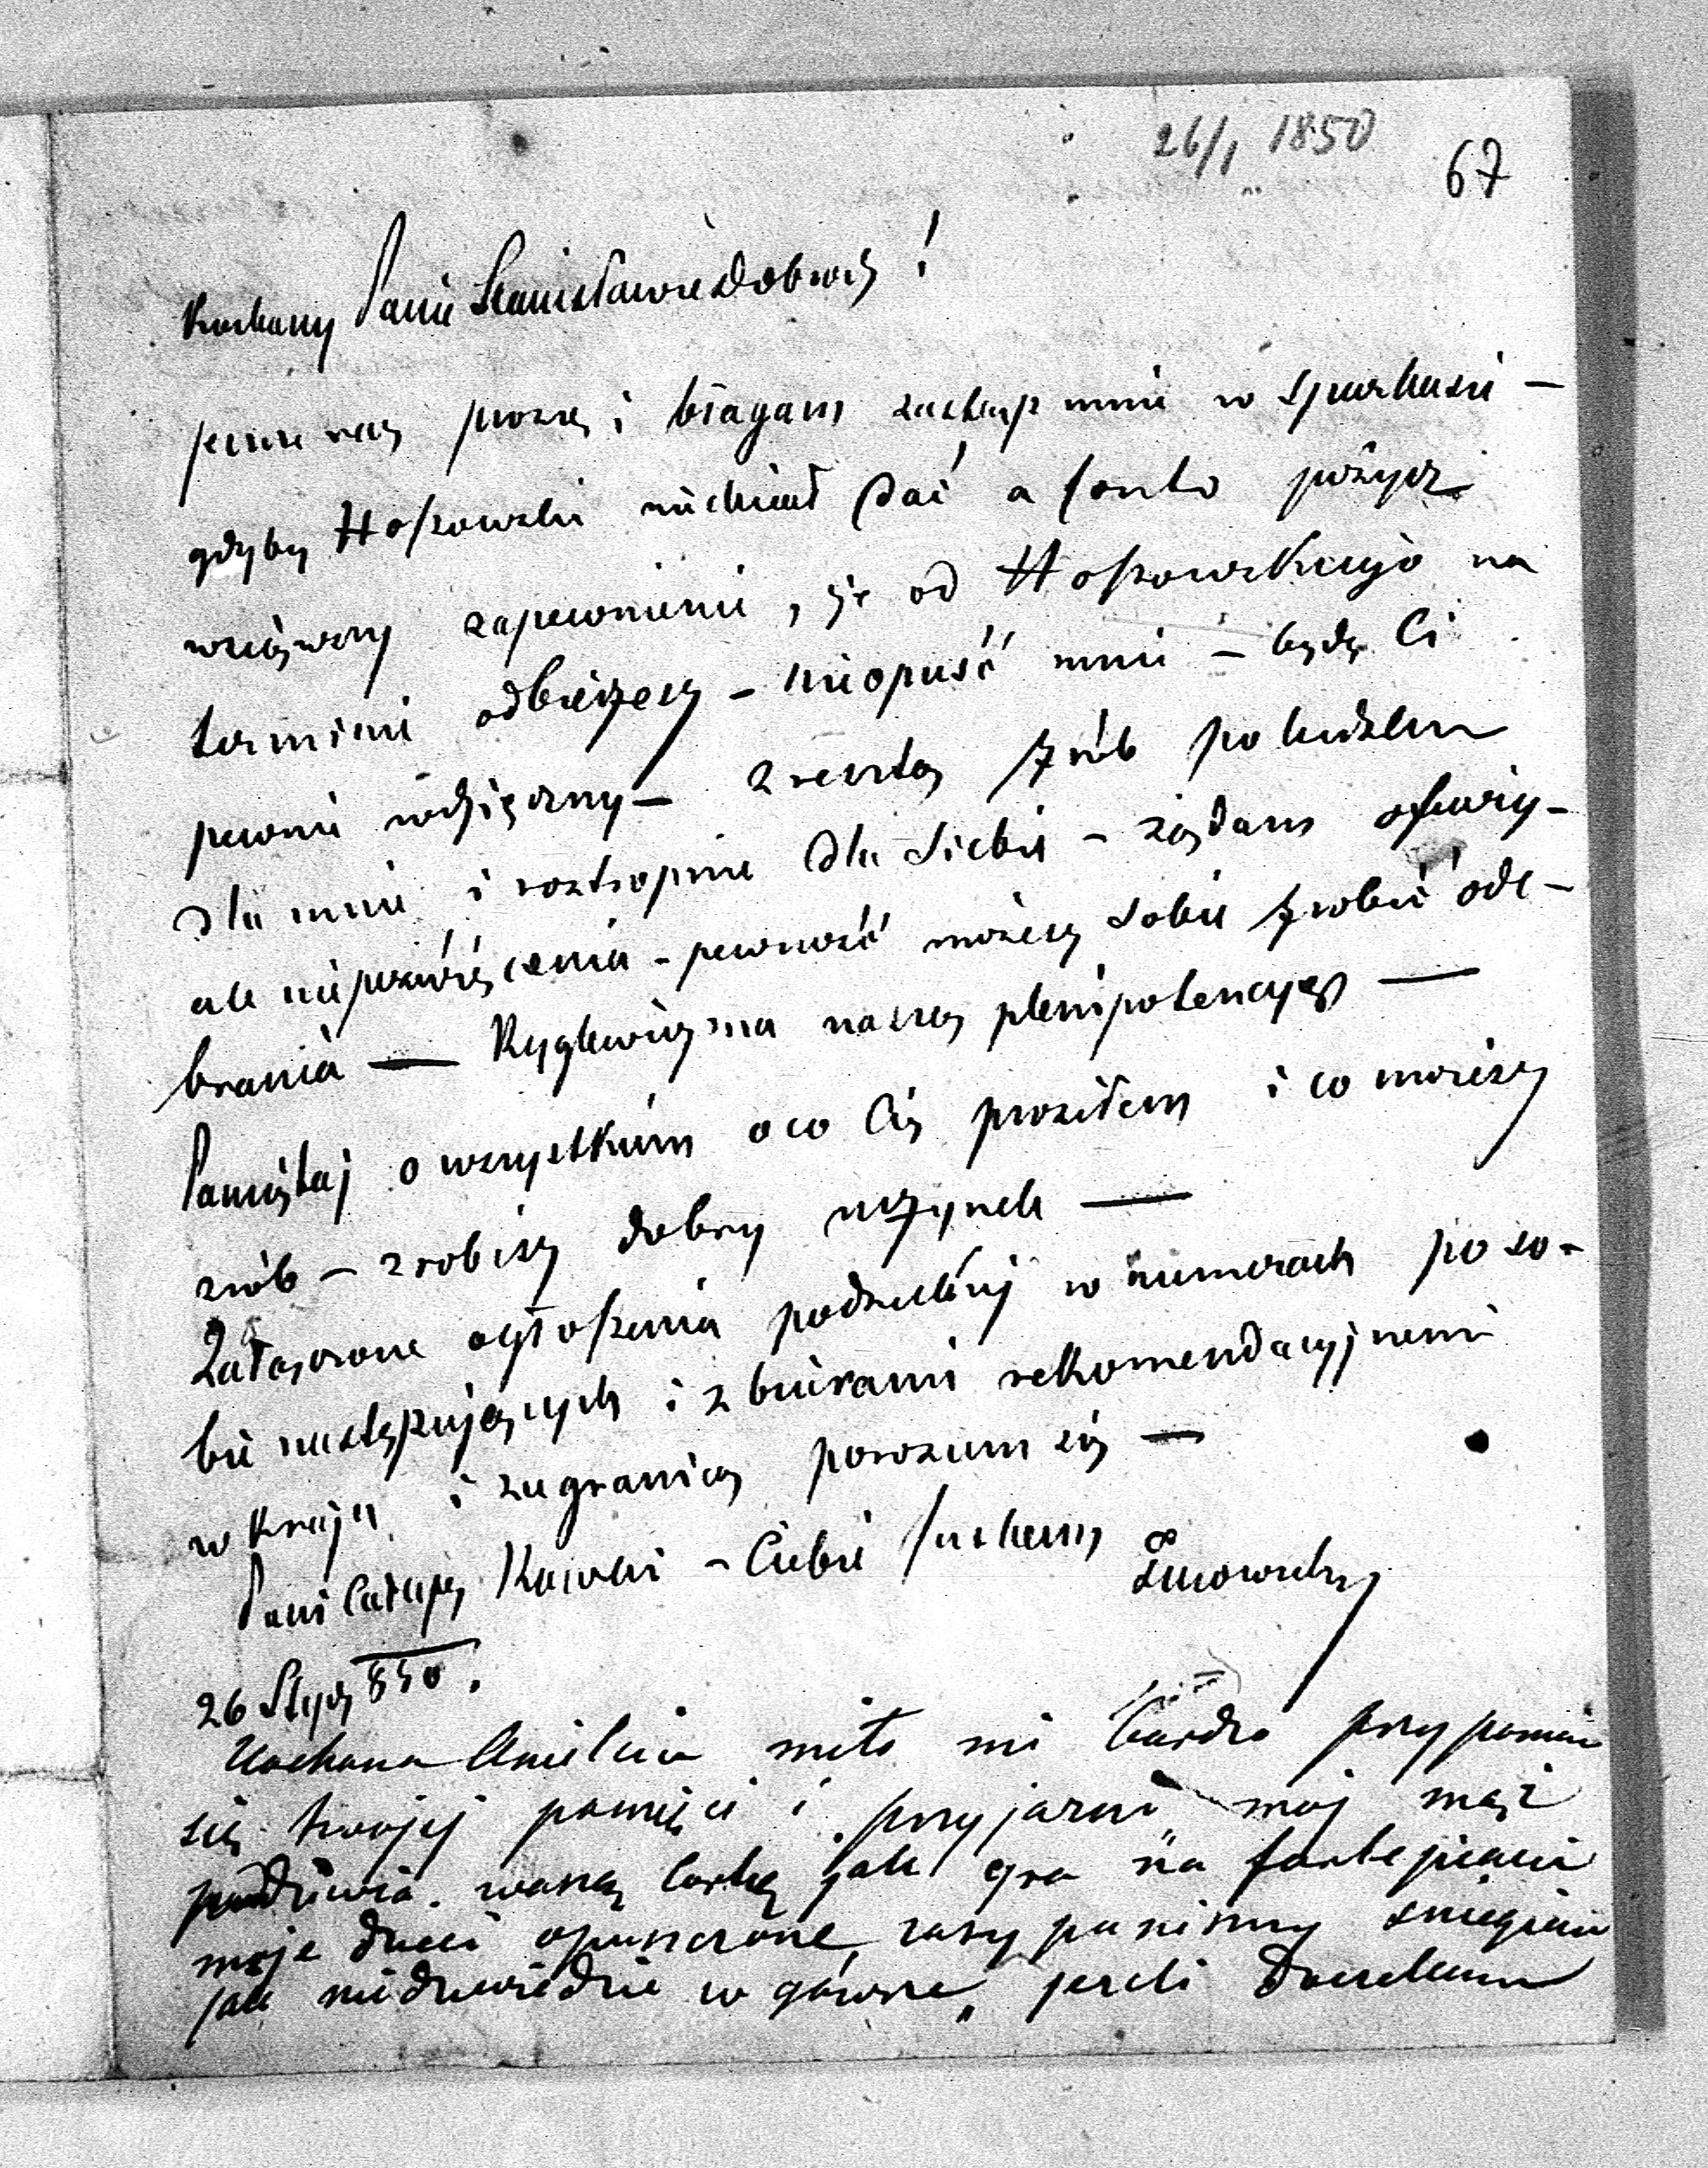 26/1 1850
67
Kochany Panie Stanisławie Dobrodz!
jeszcze raz proszę i błagam zastąp mnie w sparkasie –
gdyby Hoszowski niechciał dać a conto pożycz
wziąwszy zapewnienie, że od Hoszowskiego na
terminie odbierzesz – nieopuść mnie – będę Ci
pewnie wdzięczny – zresztą zrób po ludzku
dla mnie i roztropnie dla siebie – żądam ofiary –
ale nie poświęcenia – pewność możesz sobie zrobić ode-
brania — Ryglewicz ma naszą plenipotencyę —
Pamiętaj o wszystkiem o co Cię prosiłem i co możesz
zrób – zrobisz dobry uczynek —
Załączone ogłoszenia podziel w numerach po so-
bie następujących i z biurami rekomendacyjnemi
w kraju i zagranicą porozum się —
Pani całuję – Ciebie
26 Stycz 850.
Kochana Anielciu miło mi bardzo przypomnieć
się twojej pamięci i przyjaźni, mój mąż
podziwia waszą córkę jak gra na fortepianie
moje dzieci opuszczone, zasypaniśmy śniegiem
jak niedźwiedzie w jeżeli